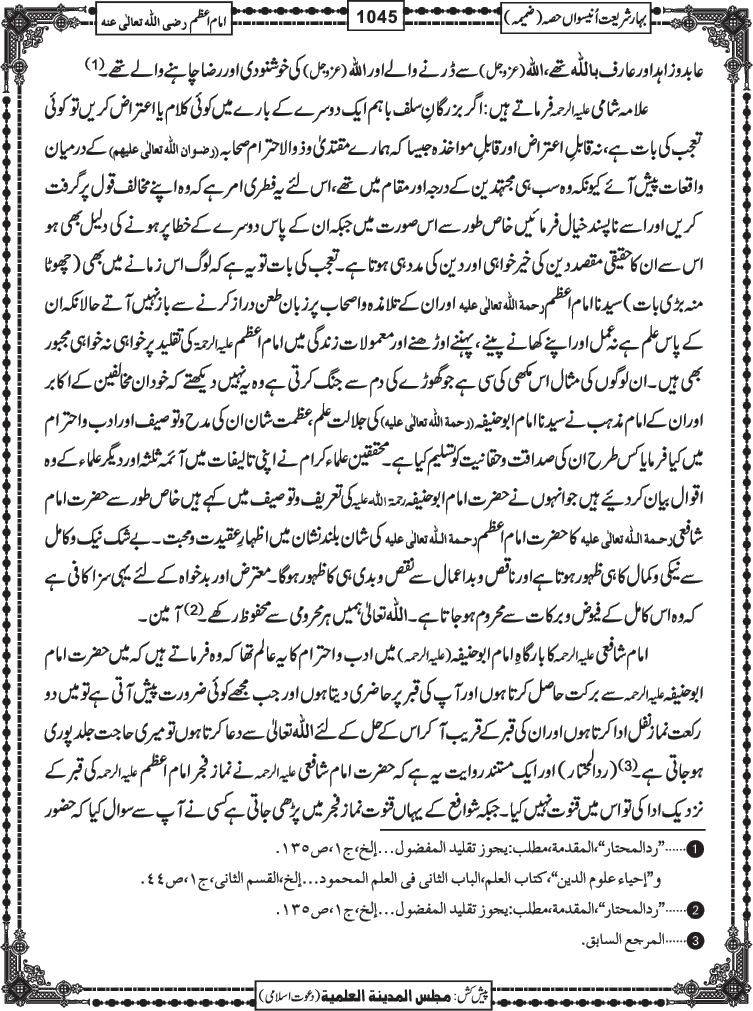 بہار شریعت اُنیسواں حصہ (ضمیمہ)
1045
امام اعظم رضی اللہ تعالیٰ عنہ
عابد و زاہد اور عارف باللہ تھے، اللہ (عزوجل) سے ڈرنے والے اور اللہ (عزوجل) کی خوشنودی اور رضا چاہنے والے تھے۔ (1)
علامہ شامی علیہ الرحمہ فرماتے ہیں: اگر بزرگانِ سلف باہم ایک دوسرے کے بارے میں کوئی کلام یا اعتراض کریں تو کوئی
تعجب کی بات ہے، نہ قابلِ اعتراض اور قابلِ مواخذہ جیسا کہ ہمارے مقتدیٰ و ذوالاحترام صحابہ (رضوان اللہ تعالیٰ علیہم) کے درمیان
واقعات پیش آئے کیونکہ وہ سب ہی مجتہدین کے درجہ اور مقام میں تھے، اس لئے یہ فطری امر ہے کہ وہ اپنے مخالف قول پر گرفت
کریں اور اسے ناپسند خیال فرمائیں خاص طور سے اس صورت میں جبکہ ان کے پاس دوسرے کے خطا پر ہونے کی دلیل بھی ہو
اس سے ان کا حقیقی مقصد دین کی خیر خواہی اور دین کی مدد ہی ہوتا ہے۔ تعجب کی بات تو یہ ہے کہ لوگ اس زمانے میں بھی (چھوٹا
منہ بڑی بات) سیدنا امام اعظم رحمۃ اللہ تعالیٰ علیہ اور ان کے تلامذہ و اصحاب پر زبان طعن دراز کرنے سے باز نہیں آتے حالانکہ ان
کے پاس علم ہے نہ عمل اور اپنے کھانے پینے، پہننے اوڑھنے اور معمولات زندگی میں امام اعظم علیہ الرحمۃ کی تقلید پر خواہی نہ خواہی مجبور
بھی ہیں۔ ان لوگوں کی مثال اس مکھی کی سی ہے جو گھوڑے کی دم سے جنگ کرتی ہے وہ یہ نہیں دیکھتے کہ خود ان مخالفین کے اکابر
اور ان کے امام مذہب نے سیدنا امام ابو حنیفہ (رحمۃ اللہ تعالیٰ علیہ) کی جلالت علم، عظمت شان ان کی مدح و توصیف اور ادب و احترام
میں کیا فرمایا کس طرح ان کی صداقت و حقانیت کو تسلیم کیا ہے۔ محققین علماء کرام نے اپنی تالیفات میں آئمہ ثلٰثہ اور دیگر علماء کے وہ
اقوال بیان کردئیے ہیں جو انہوں نے حضرت امام ابو حنیفہ رحمۃ اللہ علیہ کی تعریف و توصیف میں کہے ہیں خاص طور سے حضرت امام
شافعی رحمۃ اللہ تعالیٰ علیہ کا حضرت امام اعظم رحمۃ اللہ تعالیٰ علیہ کی شان بلند نشان میں اظہارِ عقیدت و محبت۔ بے شک نیک و کامل
سے نیکی و کمال کا ہی ظہور ہوتا ہے اور ناقص و بداعمال سے نقص و بدی ہی کا ظہور ہوگا۔ معترض اور بدخواہ کے لئے یہی سزا کافی ہے
کہ وہ اس کامل کے فیوض و برکات سے محروم ہوجاتا ہے۔ اللہ تعالیٰ ہمیں ہر محرومی سے محفوظ رکھے۔ (2) آمین۔
امام شافعی علیہ الرحمہ کا بارگاہِ امام ابو حنیفہ (علیہ الرحمہ) میں ادب و احترام کا یہ عالم تھا کہ وہ فرماتے ہیں کہ میں حضرت امام
ابو حنیفہ علیہ الرحمہ سے برکت حاصل کرتا ہوں اور آپ کی قبر پر حاضری دیتا ہوں اور جب مجھے کوئی ضرورت پیش آتی ہے تو میں دو
رکعت نماز نفل ادا کرتا ہوں اور ان کی قبر کے قریب آکر اس کے حل کے لئے اللہ تعالیٰ سے دعا کرتا ہوں تو میری حاجت جلد پوری
ہوجاتی ہے۔ (3) (ردالمحتار) اور ایک مستند روایت یہ ہے کہ حضرت امام شافعی علیہ الرحمہ نے نماز فجر امام اعظم علیہ الرحمہ کی قبر کے
نزدیک ادا کی تو اس میں قنوت نہیں کیا۔ جبکہ شوافع کے یہاں قنوت نماز فجر میں پڑھی جاتی ہے کسی نے آپ سے سوال کیا کہ حضور
1......"ردالمحتار"، المقدمة، مطلب: يجوز تقليد المفضول...إلخ، ج١، ص١٣٥.
و"إحياء علوم الدين"، كتاب العلم، الباب الثاني في العلم المحمود...إلخ، القسم الثاني، ج١، ص٤٤.
2......"ردالمحتار"، المقدمة، مطلب: يجوز تقليد المفضول...إلخ، ج١، ص١٣٥.
3......المرجع السابق.
پیش کش: مجلس المدینة العلمیة (دعوت اسلامی)